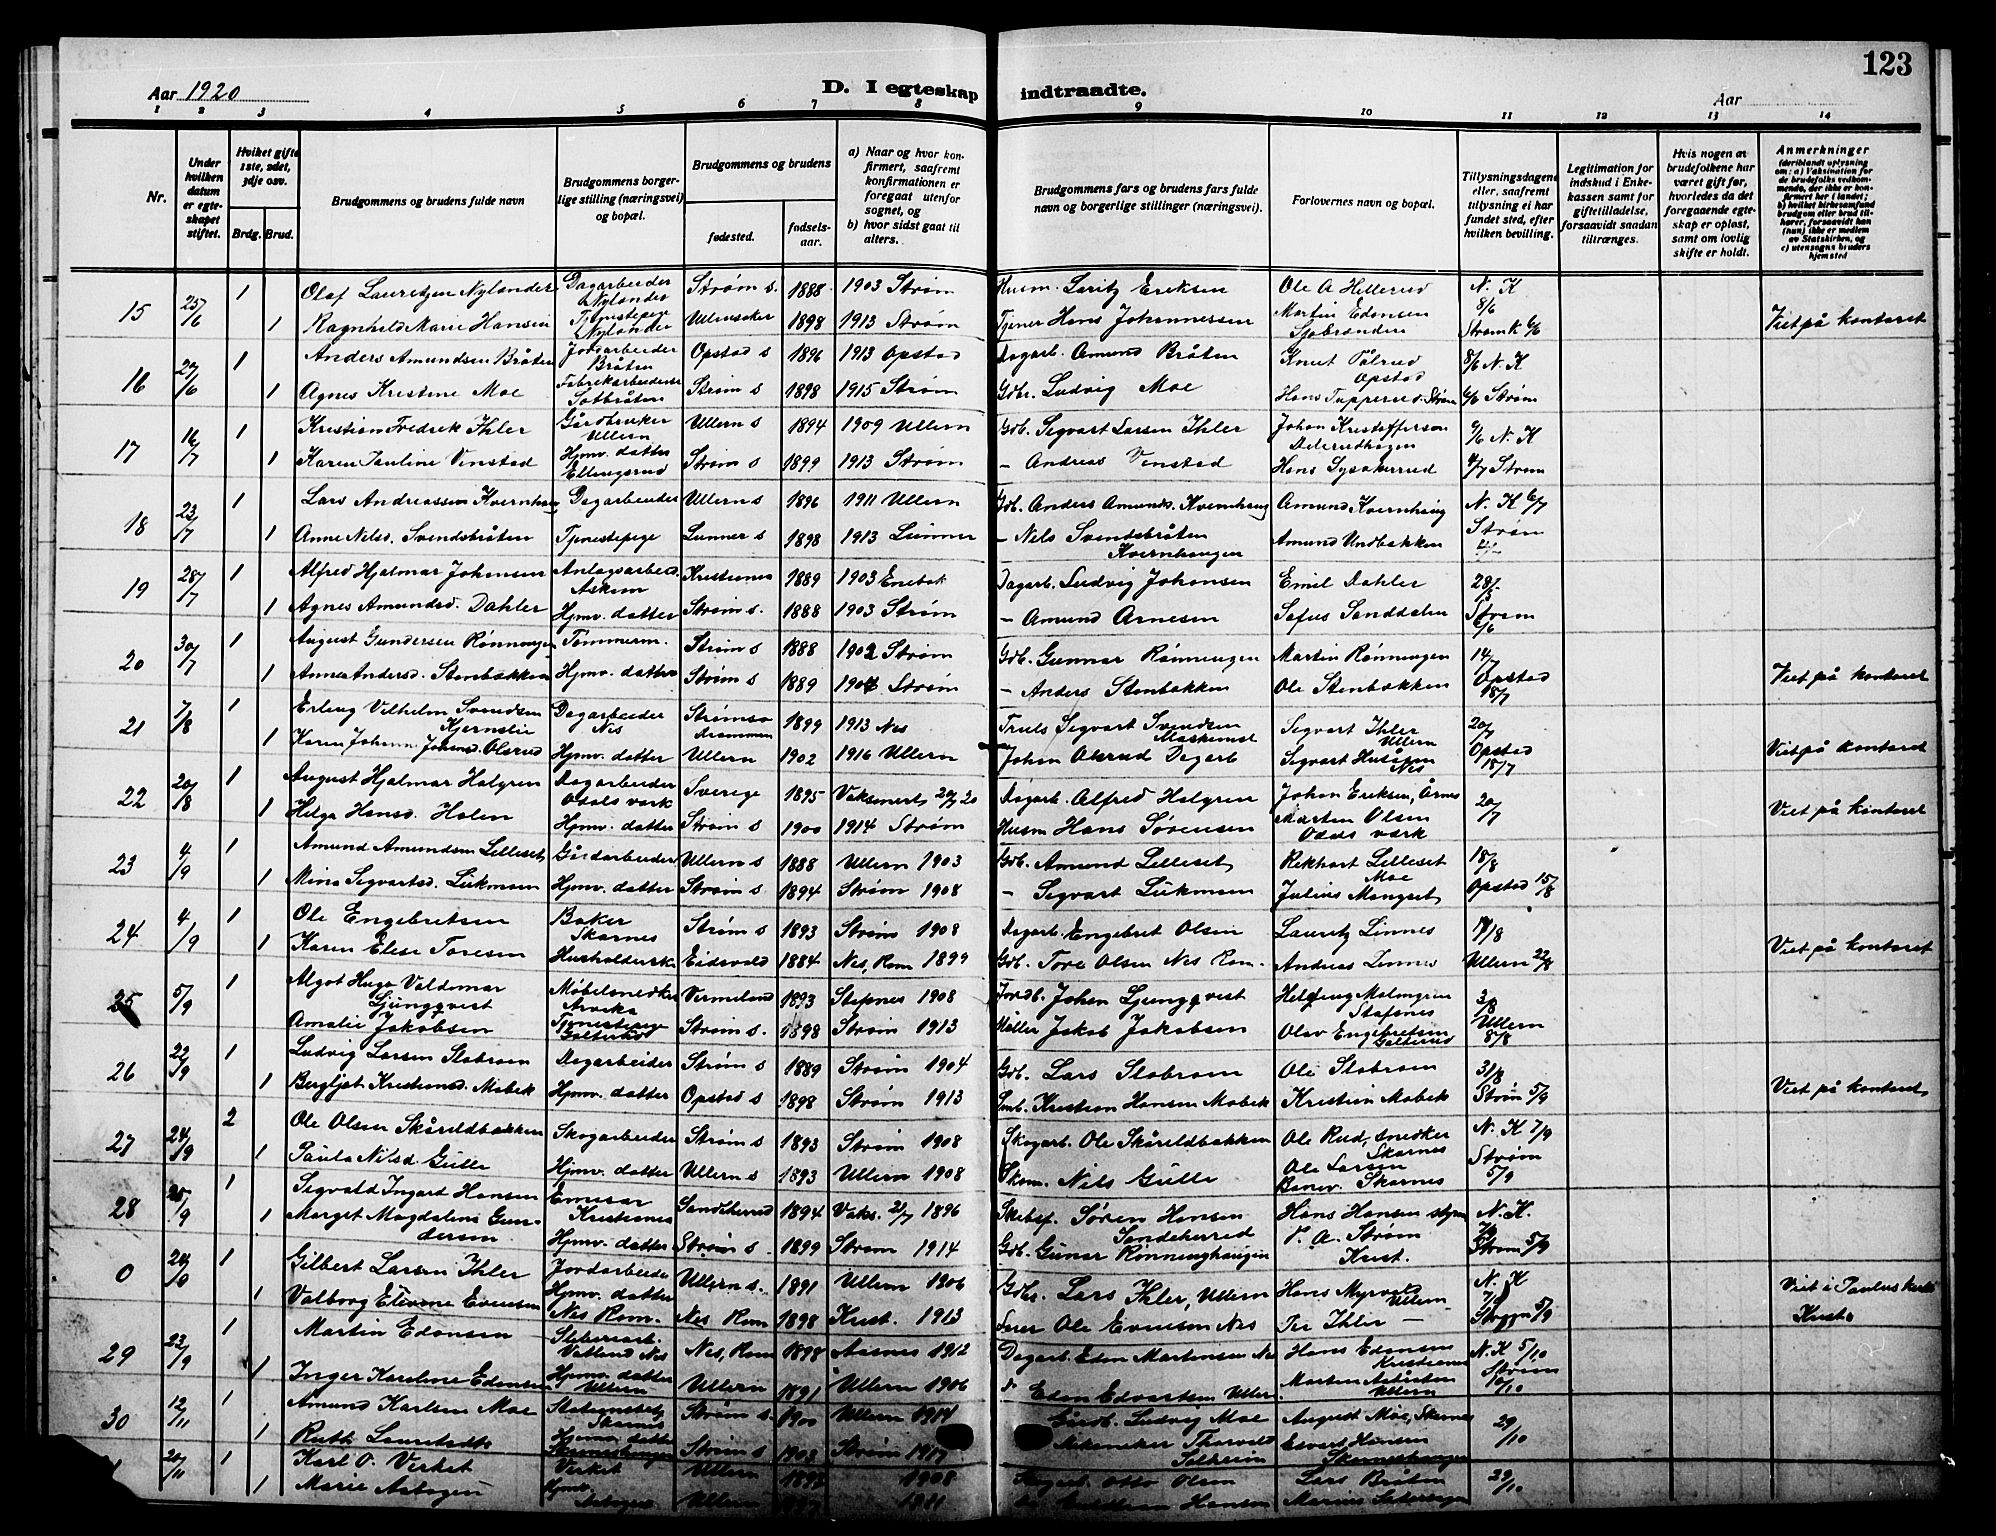 123
Aar 1920
D. I egteskap indtraadte.
Aar
1 2 3 4 5 6 7 8 9 10 11 12 13 14
Nr.
Under hvilken datum er egteskapet stiftet.
Hvilket gifte 1ste, 2det, 3dje osv.
Brdg. Brud.
Brudgommens og brudens fulde navn
Brudgommens borgerlige stilling (næringsvei) og bopæl.
Brudgommens og brudens
fødested.
fødselsaar.
a) Naar og hvor konfirmert, saafremt konfirmationen er foregaat utenfor sognet, og
b) hvor sidst gaat til alters.
Brudgommens fars og brudens fars fulde navn og borgerlige stillinger (næringsvei).
Forlovernes navn og bopæl.
Tillysningsdagene eller, saafremt tillysning ei har fundet sted, efter hvilken bevilling.
Legitimation for indskud i Enkekassen samt for giftetilladelse, forsaavidt saadan tiltrænges.
Hvis nogen av brudefolkene har været gift før, hvorledes da det foregaaende egteskap er opløst, samt om lovlig skifte er holdt.
Anmerkninger (deriblandt oplysning om: a) Vaksination for de brudefolks vedkommende, der ikke er konfirmert her i landet; b) hvilket kirkesamfund brudgom eller brud tilhører, forsaavidt han (hun) ikke er medlem av Statskirken, og c) utensogns bruders hjemsted
15 25/6 1 Olaf Lauritzen Nylander Dagarbeider Nylander Strøm s. 1888 1903 Strøm Husm. Loritz Eriksen Ole A Hellerud N. K 8/6
1 Ragnhild Marie Hansen Tjenestepige Nylander Ullensaker 1898 1913 Strøm Tjener Hans Johannessen Martin Edensen Strøm K 6/6 Viet på kontoret
16 27/6 1 Anders Amundsen Bråten Jordarbeider Bråten Opstad s 1896 1913 Opstad Dagarb. Amund Bråten Knut Pålrud Opstad 8/6 N. K
1 Agnes Kristine Moe Fabrikarbeiderske Strøm s 1898 1915 Strøm Gdb. Ludvig Moe Hans Tupperud Strøm 6/6 Strøm
17 16/7 1 Kristian Fredrik Ihler Gårdbruker Ullern Ullern s 1894 1909 Ullern Gdb. Segvart Larsen Ihler Johan Kristoffersen 6/6 N. K
1 Karen Pauline Vinstad Hjmv. datter Ellingsrud Strøm s 1899 1913 Strøm - Andreas Vinstad Hans Lysakerrud 4/7 Strøm
18 23/7 1 Lars Andreassen Kvernhaug Dagarbeider Ullern s 1896 1911 Ullern Gdb. Anders Amunds. Kvernhaug Amund Kvernhaug N. K 6/7
1 Anne Nilsd. Svendsbråten Tjenestepige Lunner s 1898 1913 Lunner - Nils Svendsbråten Kvernhaugen Amund Undbakken Strøm
19 28/7 1 Alfred Hjalmar Johansen Anlagsarbeid. Askim Kristiania 1889 1903 Enebak Dagarb. Ludvig Johansen Emil Dahler 28/5
1 Agnes Amundsd. Dahler Hjmv. datter Strøm s. 1888 1903 Strøm - Amund Arnesen Sofus Sanddalen Strøm 6/6
20 30/7 1 August Gundersen Rønningen Tømmerm. Strøm s 1888 1902 Strøm Gdb. Gunnar Rønningen Martin Rønningen 14/7
1 Anne Andersd. Stenbakken Hjmv. datter Strøm s 1889 1904 Strøm - Anders Stenbakken Ole Stenbakken Opstad 18/7 Viet på kontoret
21 7/8 1 Erling Vilhelm Svendsen Kjernslie Dagarbeider Nes Strømsø Drammen 1899 1913 Nes Truls Segvart Svendsen Maskinist Segvart Ihler Ullern 20/7
1 Karen Johanne Johansd. Olsrud Hjmv. datter Ullern 1902 1916 Ullern Johan Olsrud Dagarb Segvart Nes Opstad 18/7 Viet på kontoret
22 20/8 1 August Hjalmar Holgren Dagarbeider Odals verk Sverige 1895 Vaksinert 20/7 20 Dagarb. Alfred Holgren Johan Eriksen, Årnes 20/7
1 Helga Hansd. Holen Hjmv. datter Strøm s 1900 1914 Strøm Husm Hans Sørensen Morten Olsen Odals værk Viet på kontoret
23 4/9 1 Amund Amundsen Lilleset Gårdarbeider Ullern s 1888 Ullern 1903 Gdb. Amund Lilleset Rikhart Lilleset Moe 18/8
1 Mina Segvartsd. Lükmoen Hjmv. datter Strøm s 1894 Strøm 1908 - Segvart Lükmoen Julius Mangset Opstad 15/8
24 4/9 1 Ole Engebretsen Baker Skarnes Strøm s 1893 Strøm 1908 Dagarb. Engebret Olsen Lauritz Linnes 19/8
1 Karen Elise Toresen Husholderske Eidsvold 1884 Nes, Rom 1899 Gdb. Tore Olsen Nes Rom. Andreas Linnes Ullern 22/8 Viet på kontoret
25 5/9 1 Algot Hugo Valdemar Ljungqvist Møbelsnedker Arvika Vermeland 1893 Stafnes 1908 Jordb. Johan Ljungqvist Helfeng Malmgren Stafsnes 3/8
Amalie Jakobsen Tjenestepige Galterud Strøm s. 1898 Strøm 1913 Møller Jakob Jakobsen Olav Engebretsen Galterud Ullern 8/8
26 22/9 1 Ludvig Larsen Slobraan Dagarbeider Strøm s 1889 Strøm 1904 Gdb. Lars Slobraan Ole Slobraan 31/8
1 Bergljot Kristiansd. Mobek Hjmv. datter Opstad s 1898 Strøm 1913 Smb. Kristian Hansen Mobek Kristian Mobek Strøm 5/9 Viet på kontoret
27 24/9 2 Ole Olsen Skåreldbakken Skogarbeider Strøm s 1893 Strøm 1908 Skogarb. Ole Skåreldbakken Ole Rud, snedker Skarnes N. K 7/9
1 Paula Nilsd. Gulle Hjmv. datter Ullern s 1893 Ullern 1908 Skom. Nils Gulle Ole Larsen Banev. Skarnes Strøm 5/9
28 25/9 1 Segvald Ingard Hansen Kristiania Sandeherred 1894 Vaks. 2/7 1896 Skibsf. Søren Hansen Sandeherred Hans Hansen N. K.
1 Marget Magdalena Gundersen Hjmv. datter Strøm s 1899 Strøm 1914 Gdb. Gunar Rønninghaugen P. A. Strøm Krist. Strøm 5/9
0 1 Gilbert Larsen Ihler Jordarbeider Ullern s. 1891 Ullern 1906 Gdbr. Lars Ihler, Ullern Hans Myrvold Ullern N. K
1 Valborg Elevine Evensen Hjmv. datter Nes Rom. Nes Rom 1898 Krist. 1913 Ole Evensen Nes Per Ihler - 5/9 Viet i Paulus kirke Krist.
29 23/9 1 Martin Edensen Nes, Rom 1898 Aasnes 1912 Dagarb. Eden Martinsen Hans Edensen Kristiania N. K 5/10
1 Inger Karoline Edensen Hjmv. datter Ullern Ullern 1891 Ullern 1906 Eden Edvartsen Ullern Strøm 10/10
30 12/11 1 Amund Karlsen Moe Skarnes Strøm s. 1900 Ullern 1914 Ludvig Moe August Moe, Skarnes 29/10
1 Ruth Hjmv. datter Strøm s 1903 Strøm 1917 Mekaniker Thorvald Solheim Edvart Hansen
20/11 1 Karl O. Verket Verket Ullern 1893 1908 Skogarb. Otto Olsen Lars Bråten 29/10
1 Marie Asbogen Hjmv. Ullern Hansen